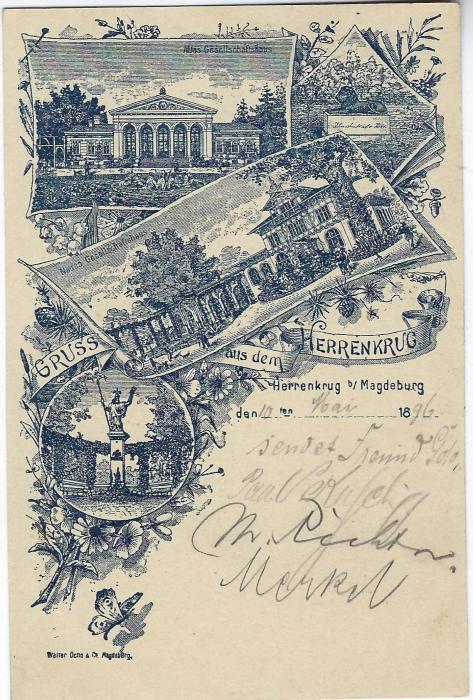 Altes Gesellschaftshaus
Neues Gesellschaftshaus
GRUSS
aus dem
HERRENKRUG
Herrenkrug b/ Magdeburg
den 10 ten Mai 1896
sendet Freund
Paul
M. Richter.
Merkel
Walter Ochs & Co. Magdeburg.